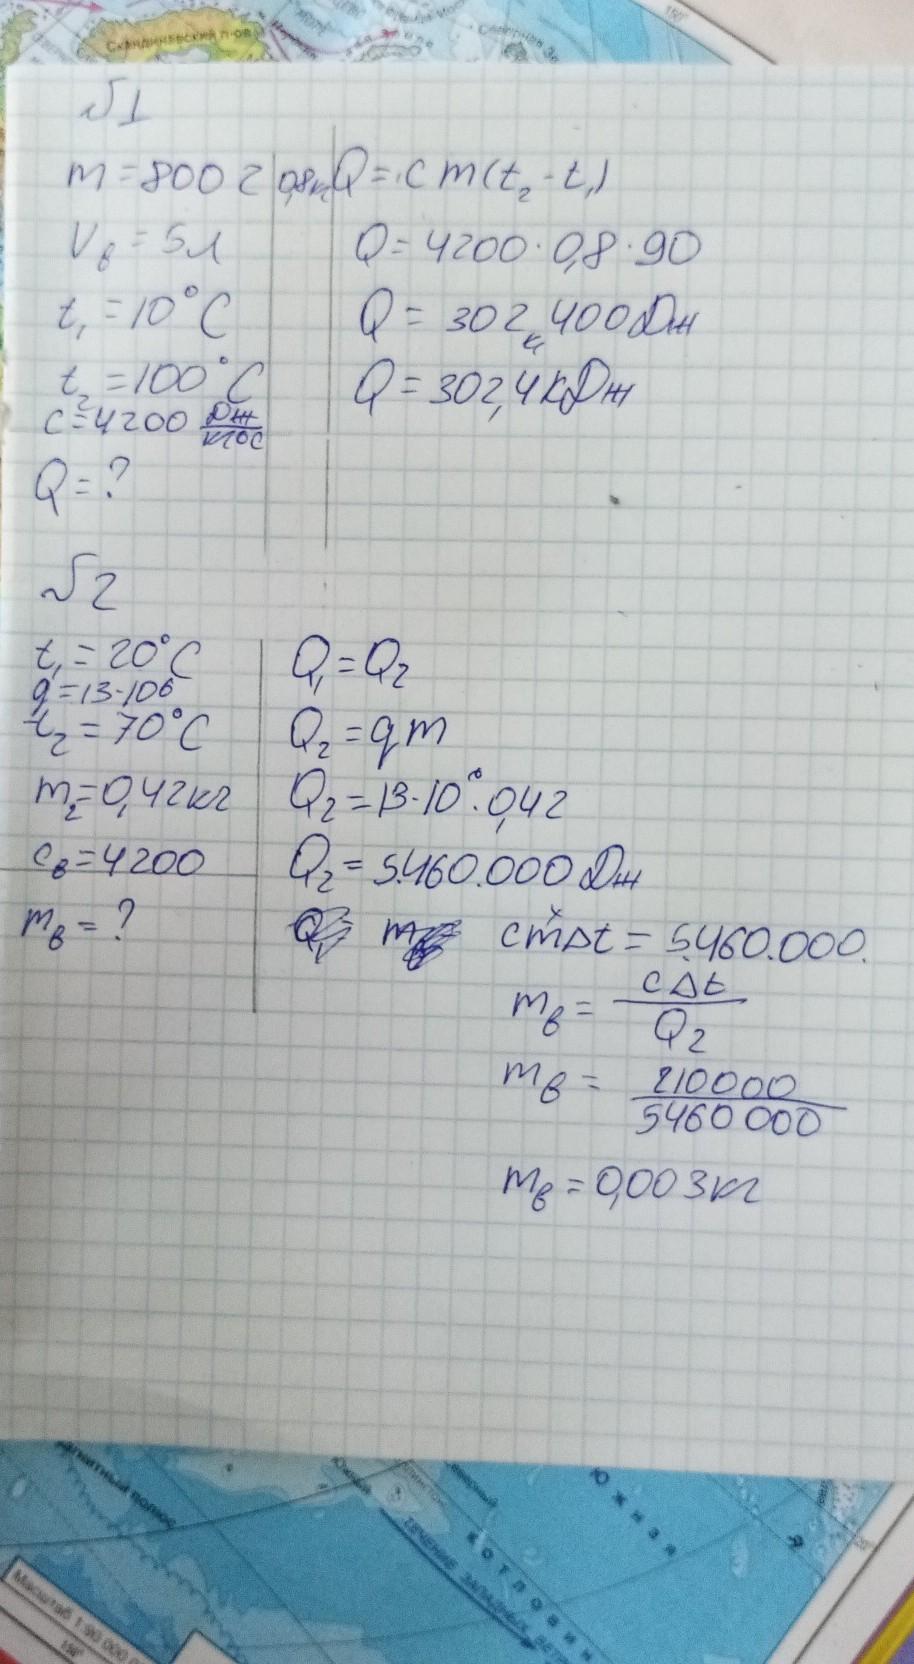 Скандинавский п-ов
150°
№1
m = 800 г | 0,8кг
Vв = 5л
t₁ = 10°C
t₂ = 100°C
c = 4200 Дж/кг°C
Q = ?
Q = c m (t₂ - t₁)
Q = 4200 · 0,8 · 90
Q = 302 400 Дж
Q = 302,4 кДж
№2
t₁ = 20°C
q = 13·10⁶
t₂ = 70°C
m₂ = 0,42кг
cв = 4200
mв = ?
Q₁ = Q₂
Q₂ = qm
Q₂ = 13·10⁶·0,42
Q₂ = 5.460.000 Дж
cmΔt = 5.460.000.
mв = cΔt/Q₂
mв = 210000/5460 000
mв = 0,003кг
ЮЖНАЯ
КОТЛОВИН
ТЕЧЕНИЕ ЗАПАДНЫХ ВЕТ
Масштаб 1:90 000
150°